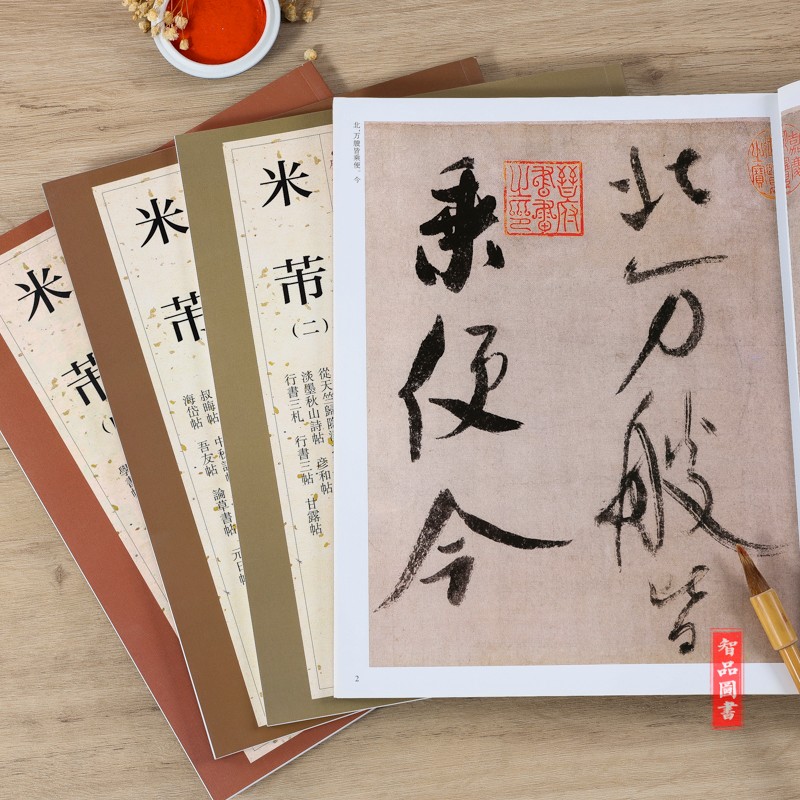 北、万艘皆乘便。今
北万艘皆
乘便今
晉府
書畫
之印
2
米芾
(二)
從天竺歸隱
淡墨秋山詩帖 彥和帖
行書三札 行書三帖 甘露帖
米芾
叔晦帖 中秋
海岱帖 吾友帖 論草書帖 元日帖
米芾
學書
智品圖書